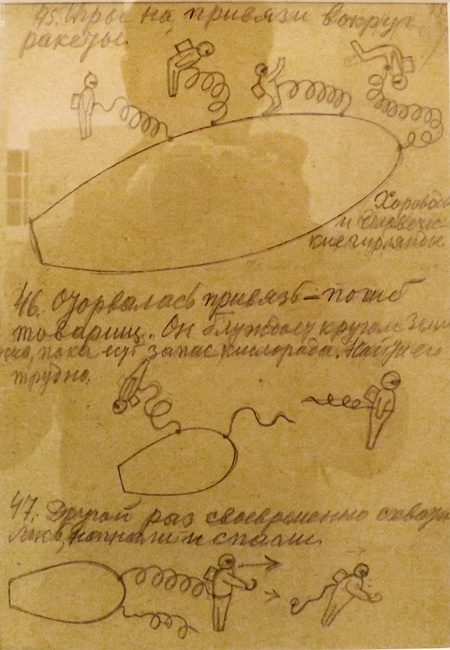 45. Игры на привязи вокруг
ракеты.
Хороводы
и человечес-
кие гирлянды.
46. Оторвалась привязь – погиб
товарищ. Он блуждает кругом Земли
пока есть запас кислорода. Найти его
трудно.
47. Другой раз своевременно
нагнали и спасли.